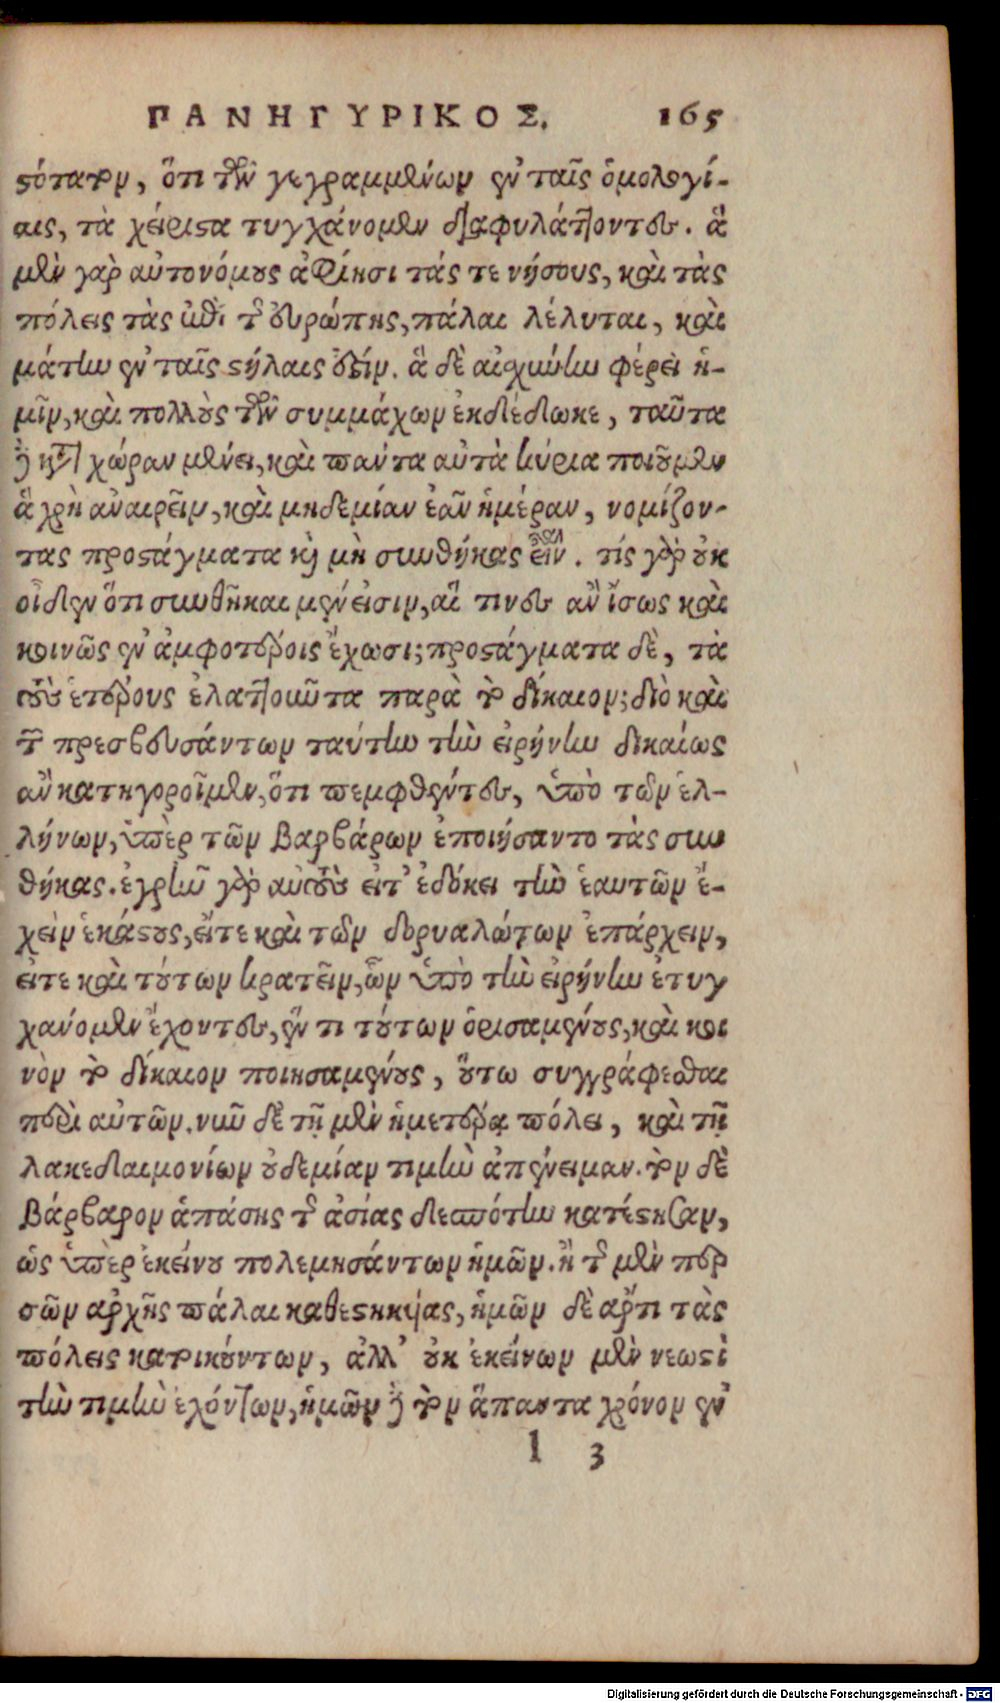 ΠΑΝΗΓΥΡΙΚΟΣ. 165
ϛότατον, ὅτι τῶν γεγραμμένων ἐν ταῖς ὁμολογί-
αις, τὰ χείριϛα τυγχάνομεν διαφυλάττοντες. ἃ
μὲν γὰρ αὐτονόμους ἀφίησι τάς τε νήσους, καὶ τὰς
πόλεις τὰς ἐπὶ τῆς εὐρώπης, πάλαι λέλυται, καὶ
μάτην ἐν ταῖς ϛήλαις ἐϛίν. ἃ δὲ αἰχύνην φέρει ἡ-
μῖν, καὶ πολλοὺς τῶν συμμάχων ἐκδέδωκε, ταῦτα
δὲ κατὰ χώραν μένει, καὶ πάντα αὐτὰ κύρια ποιοῦμεν
ἃ χρὴ ἀναιρεῖν, καὶ μηδεμίαν ἐᾶν ἡμέραν, νομίζον-
τας προϛάγματα καὶ μὴ συνθήκας εἶναι. τίς γὰρ οὐκ
οἶδεν ὅτι συνθῆκαι μέν εἰσιν, αἵ τινες ἂν ἴσως καὶ
κοινῶς ἐν ἀμφοτέροις ἔχωσι; προϛάγματα δὲ, τὰ
τοὺς ἑτέρους ἐλαττοῦντα παρὰ τὸ δίκαιον; διὸ καὶ
τῶν πρεσβευσάντων ταύτην τὴν εἰρήνην δικαίως
ἂν κατηγοροῖμεν, ὅτι πεμφθέντες, ὑπὸ τῶν ἑλ-
λήνων, ὑπὲρ τῶν βαρβάρων ἐποιήσαντο τὰς συν
θήκας. ἐχρῆν γὰρ αὐτοὺς εἴτ' ἐδόκει τὴν ἑαυτῶν ἔ-
χειν ἑκάϛους, εἴτε καὶ τῶν δορυαλώτων ἐπάρχειν,
εἴτε καὶ τούτων κρατεῖν, ὧν ὑπὸ τὴν εἰρήνην ἐτυγ
χάνομεν ἔχοντες, ἕν τι τούτων ὁρισαμένους, καὶ κοι
νὸν τὸ δίκαιον ποιησαμένους, οὕτω συγγράφεσθαι
περὶ αὐτῶν. νῦν δὲ τῇ μὲν ἡμετέρᾳ πόλει, καὶ τῇ
λακεδαιμονίων οὐδεμίαν τιμὴν ἀπένειμαν. τὸν δὲ
βάρβαρον ἁπάσης τῆς ἀσίας δεσπότην κατέϛησαν,
ὡς ὑπὲρ ἐκείνου πολεμησάντων ἡμῶν. ἢ τῆς μὲν περ
σῶν ἀρχῆς πάλαι καθεϛηκυίας, ἡμῶν δὲ ἄρτι τὰς
πόλεις κατοικούντων, ἀλλ' οὐκ ἐκείνων μὲν νεωϛὶ
τὴν τιμὴν ἐχόντων, ἡμῶν δὲ τὸν ἅπαντα χρόνον ἐν
l 3
Digitalisierung gefördert durch die Deutsche Forschungsgemeinschaft - DFG